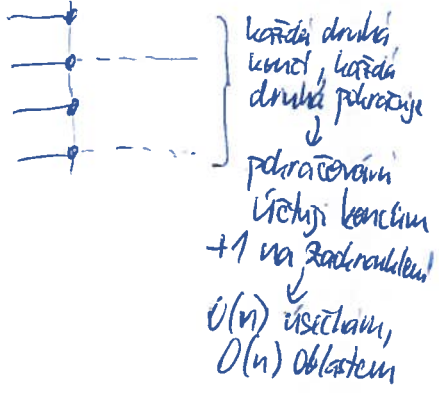 každá druhá
končí, každá
druhá pokračuje
pokračování
účtuji koncům
+1 na zaokrouhlení
O(n) úsečkám,
O(n) oblastem